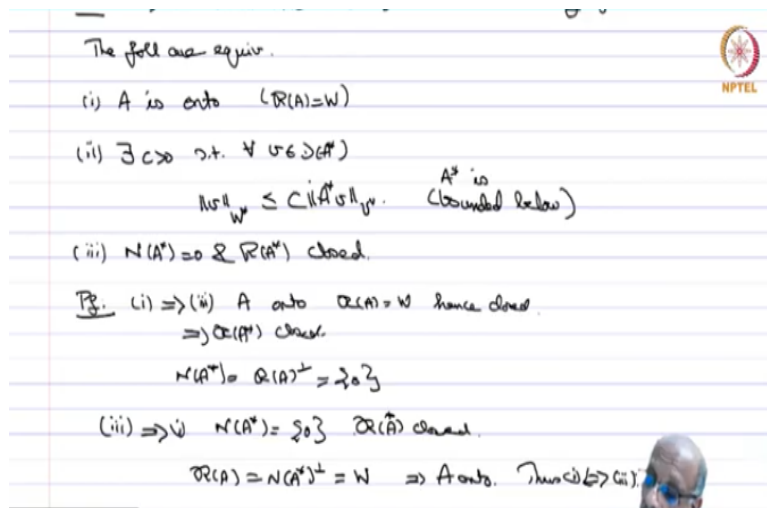 The foll are equiv.
NPTEL
(i) A is onto (R(A)=W)
(ii) ∃ C>0 s.t. ∀ v∈D(A*)
‖v‖_W* ≤ C‖A*v‖_V*. A* is (bounded below)
(iii) N(A*)=0 & R(A*) closed.
Pf. (i) ⇒ (iii) A onto R(A)=W hence closed.
⇒ R(A*) closed.
N(A*)= R(A)^⊥ = {0}
(iii) ⇒ (i) N(A*)= {0} R(A*) closed.
R(A) = N(A*)^⊥ = W ⇒ A onto. Thus (i) ⇔ (iii).